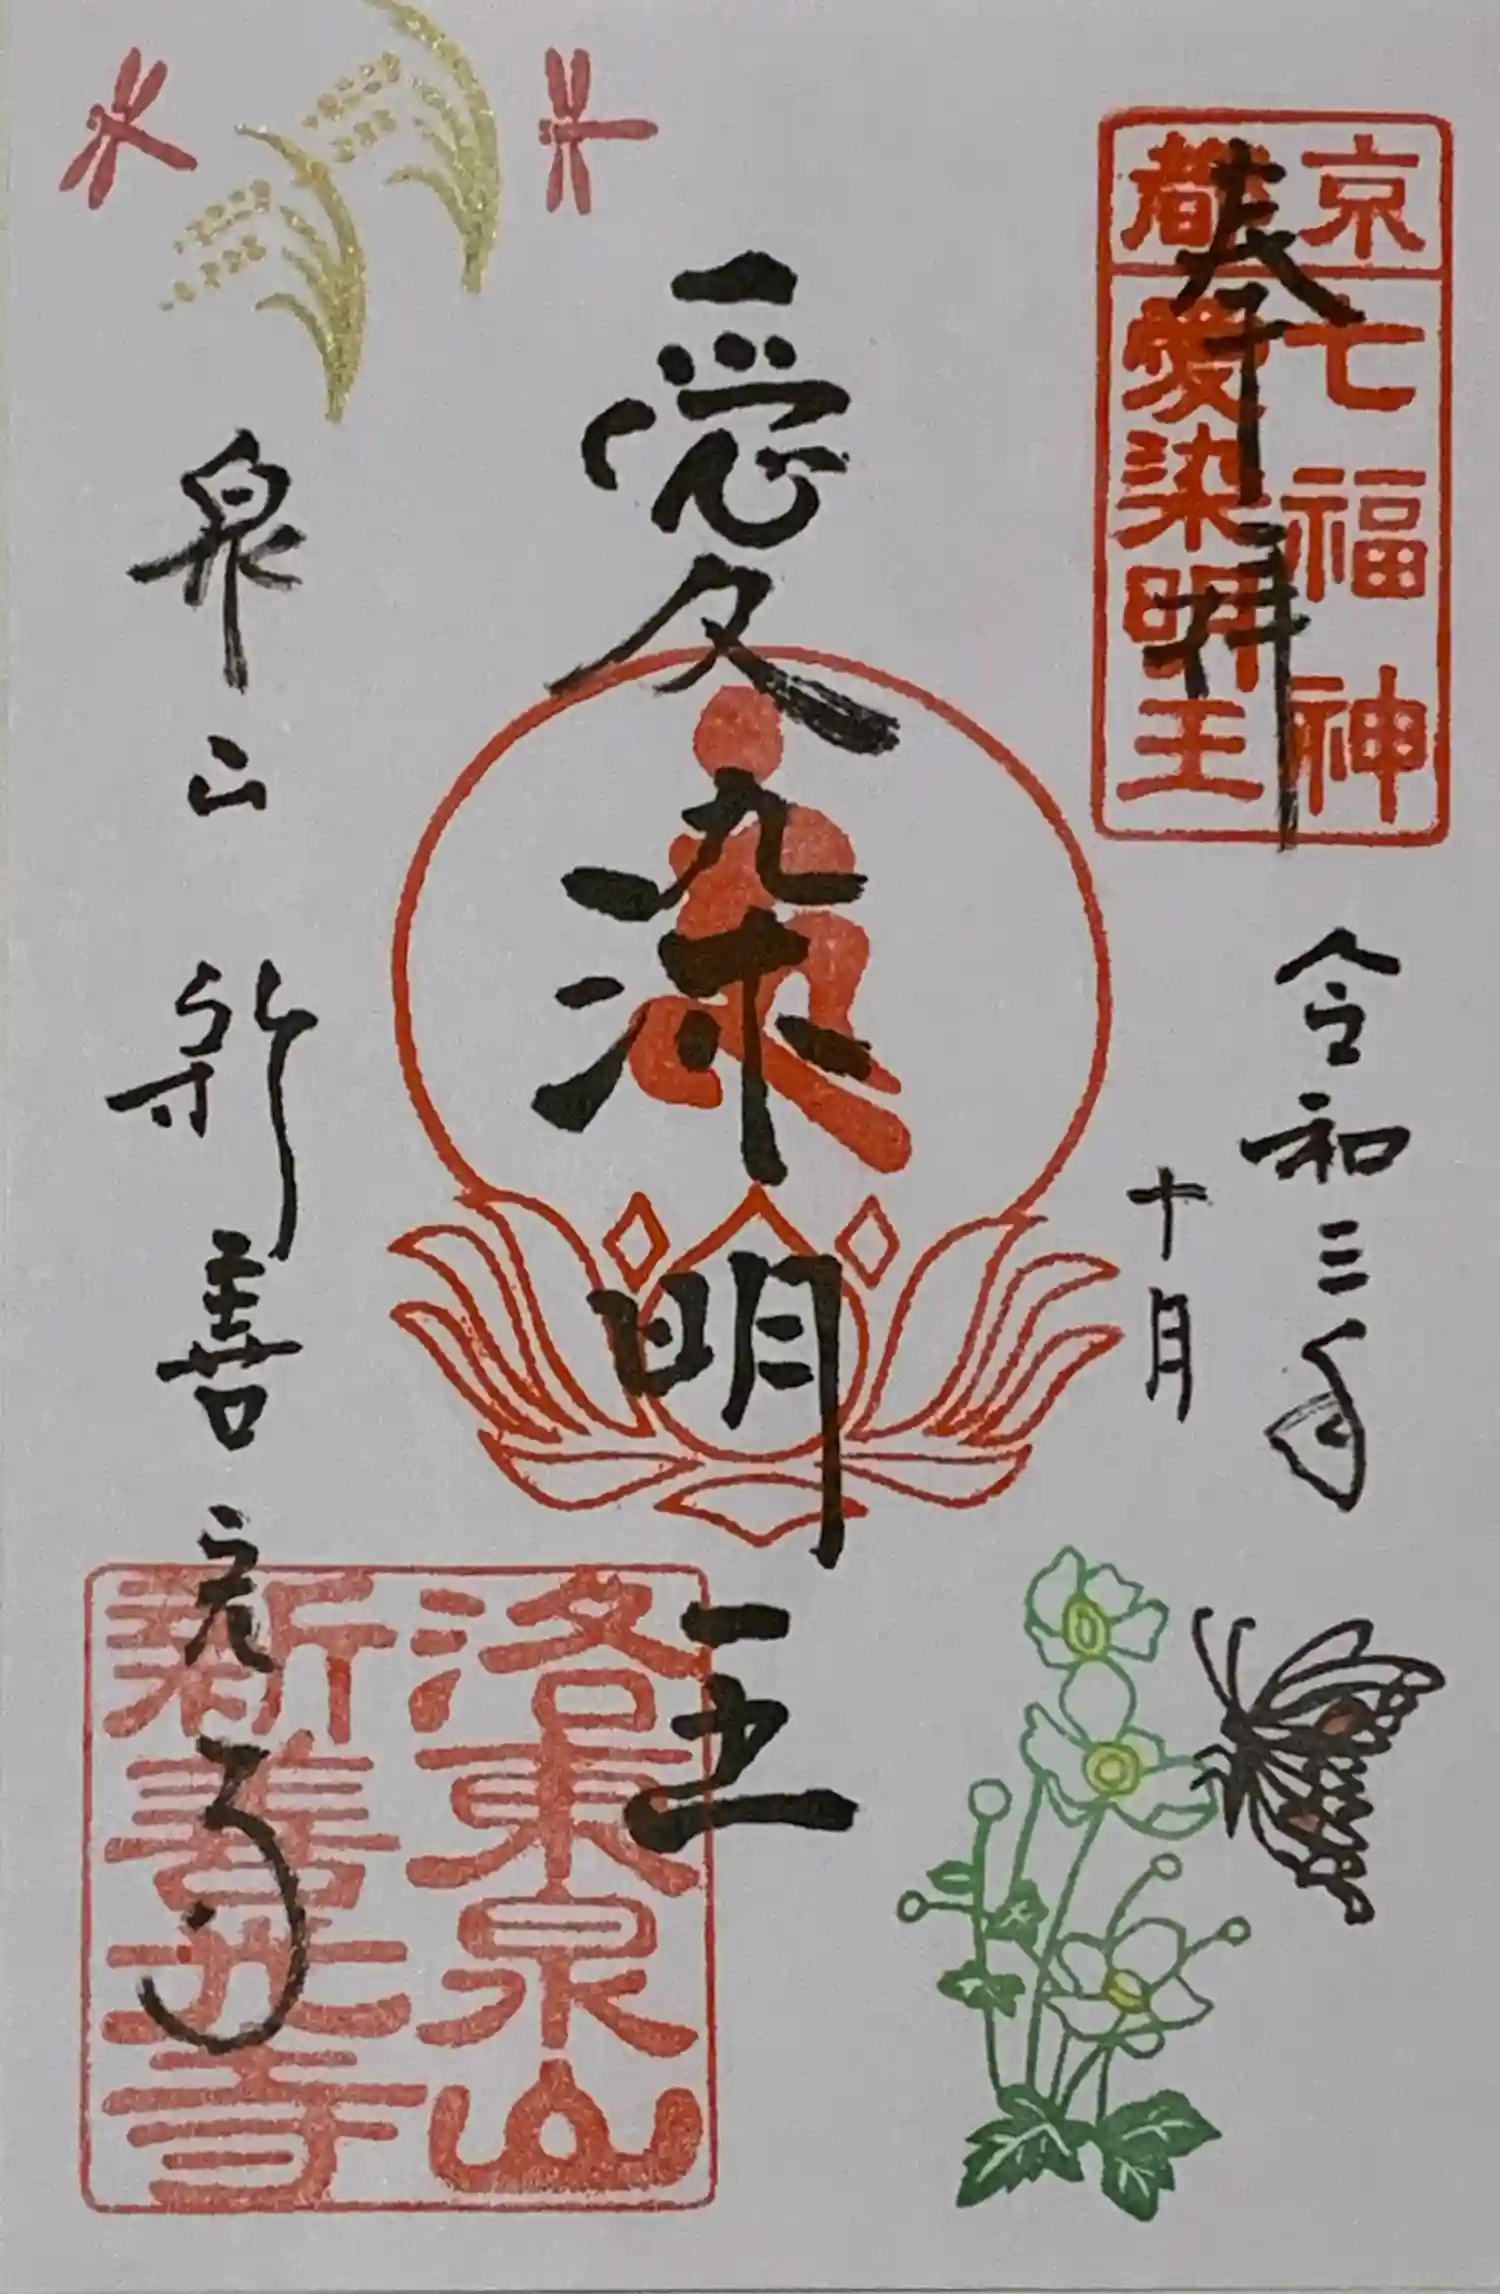 京都
七福神
愛染明王
奉拝
令和三年
十月
愛染明王
泉山 新善光寺
洛東泉山
新善光寺